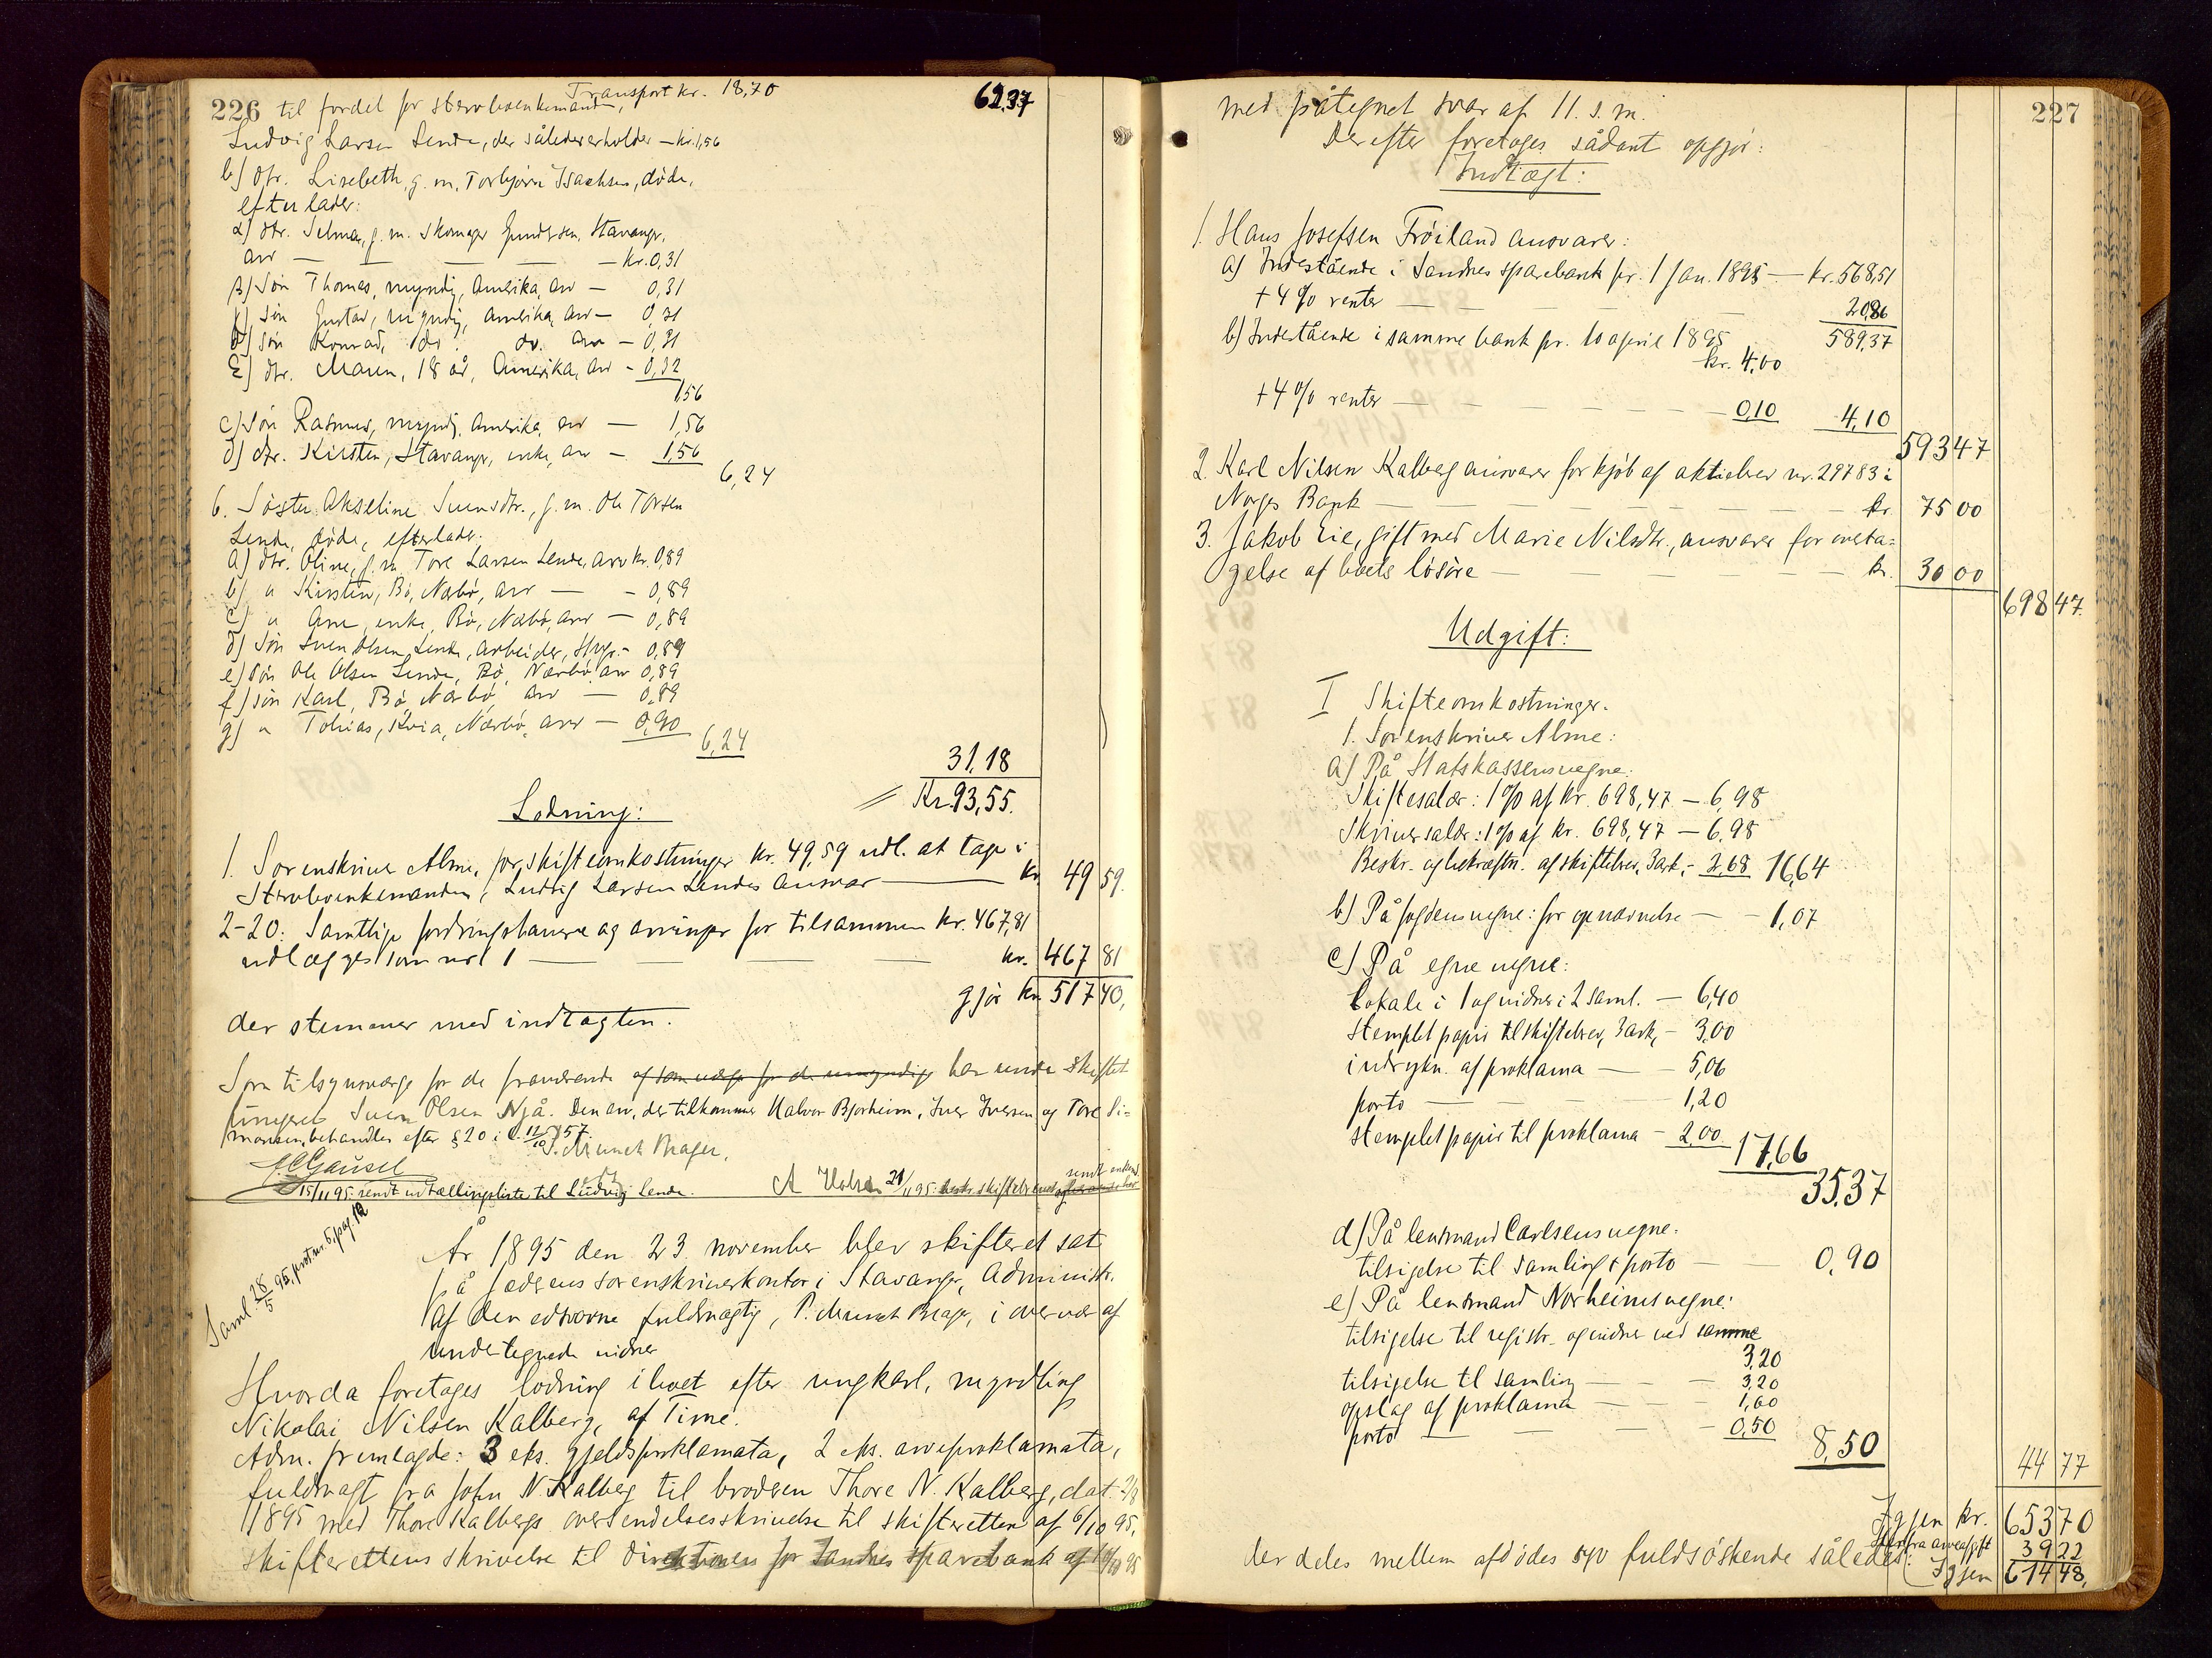 226 til fordel for stervboenkemand, Transport kr. 18,70 62,37
Ludvig Larsen Lende, der således erholder – kr. 1,56
b) dtr. Lisebeth, g. m. Torbjörn Isachsen, döde,
efterlader:
α) dtr. Selma, g. m. skomager Gundersen, Stavanger,
arv — — — — kr. 0,31
β) sön Thomas, myndig, Amerika, arv — 0,31
γ) sön Gustav, myndig, Amerika, arv — 0,31
δ) sön Konrad, do. do. arv — 0,31
ε) dtr. Maren, 18 år, Amerika, arv – 0,32
1,56
c) sön Rasmus, myndig, Amerika, arv — 1,56
d) dtr. Kirsten, Stavanger, enke, arv — 1,56
6,24
6. Söster Akseline Svensdtr., g. m. Ole Torsen
Lende, döde, efterlader:
a) dtr. Oline, g. m. Tore Larsen Lende, arv kr. 0,89
b) " Kirsten, Bö, Nærbö, arv — – 0,89
c) " Ane, enke, Bö, Nærbö, arv — 0,89
d) sön Sven Olsen Lende, arbeider, Stvgr. – 0,89
e) sön Ole Olsen Lende, Bö, Nærbö, arv 0,89
f) sön Karl, Bö, Nærbö, arv — 0,89
g) " Tobias, Kvia, Nærbö, arv — 0,90
6,24
31,18
Kr. 93,55.
Lodning:
1. Sorenskriver Alme, for skifteomkostninger kr. 49,59 udl. at tage i
Stervboenkemanden, Ludvig Larsen Lendes ansvar — kr. 49 59.
2-20: Samtlige fordringshavere og arvinger for tilsammen kr. 467,81
udlægges som ved 1 — — — — kr. 467 81
gjör kr. 517 40,
der stemmer med indtægten.
Som tilsynsværge for de fraværende af som værge for de umyndige har under skiftet
fungeret Sven Olsen Njå. Den arv, der tilkommer Halvor Bjorheim, Iver Iversen og Tore Si=
monsen, behandles efter § 20 i l. 12/10 1857.
P. Munch Brager,
J. C. Gausel
15/11 95: sendt udtællingsliste til Ludvig Lende. A Holsen 21/11 95: sendt enkem.
Saml. 28/5 95, prot. nr. 5, pag. 12
År 1895 den 23 november blev skifteret sat
på Jæderens sorenskriverkontor i Stavanger, Administr.
af den edsvorne fuldmægtig, P. Munch Brager, i overvær af
undertegnede vidner
Hvorda foretoges lodning i boet efter ungkarl, myndling
Nikolai Nilsen Kalberg, af Time.
Adm. fremlagde: 3 eks. gjeldsproklamata, 2 eks. arveproklamata,
fuldmagt fra John N. Kalberg til broderen Thore N. Kalberg, dat. 2/8
1895 med Thore Kalbergs oversendelsesskrivelse til skifteretten af 6/10 95,
skifterettens skrivelse til direktionen for Sandnes sparebank af 10/10 95
227
med påtegnet svar af 11. s. m.
Derefter foretoges sådant opgjör:
Indtægt:
1. Hans Josefsen Fröiland ansvarer:
a) Indestående i Sandnes sparebank pr. 1 jan. 1895 — kr. 568,51
+ 4 % renter — — — — 20,86
589,37
b) Indestående i samme bank pr. 10 april 1895
kr. 4,00
+ 4 % renter — — — — 0,10 4,10
593 47
2. Karl Nilsen Kalberg ansvarer for kjöb af aktiebrev nr. 29783 i
Norges Bank — — — — — — kr. 75 00
3. Jakob Lie, gift med Marie Nilsdtr., ansvarer for overta=
gelse af boets lösöre — — — — kr. 30 00
698 47.
Udgift:
I Skifteomkostninger.
1. Sorenskriver Alme:
a) På Statskassens vegne:
Skiftesalær: 1 % af kr. 698,47 — 6,98
Skriversalær: 1 % af kr. 698,47 — 6,98
Beskr. og bekræftn. af skiftebrev, 3 ark, – 2,68 16,64
b) På fogdens vegne: for opnævnelse — – 1,07
c) På egne vegne:
Lokale i 1 og vidner i 2 saml. — 6,40
stemplet papir til skiftebrev, 3 ark, – 3,00
indrykn. af proklama — – 5,06
porto — — — 1,20
stemplet papir til proklama – 2,00.
17,66
35,37
d) På lensmand Carlsens vegne:
tilsigelse til samling & porto — — 0,90
e) På lensmand Norheims vegne:
tilsigelse til registr. og vidner ved samme
3,20
tilsigelse til samling — — – 3,20
opslag af proklama — — – 1,60
porto — — — – 0,50
8,50
44 77
Igjen kr. 653 70
Herfra arveafgift 39 22
Igjen 614 48,
der deles mellem afdödes syv fuldsöskende således: